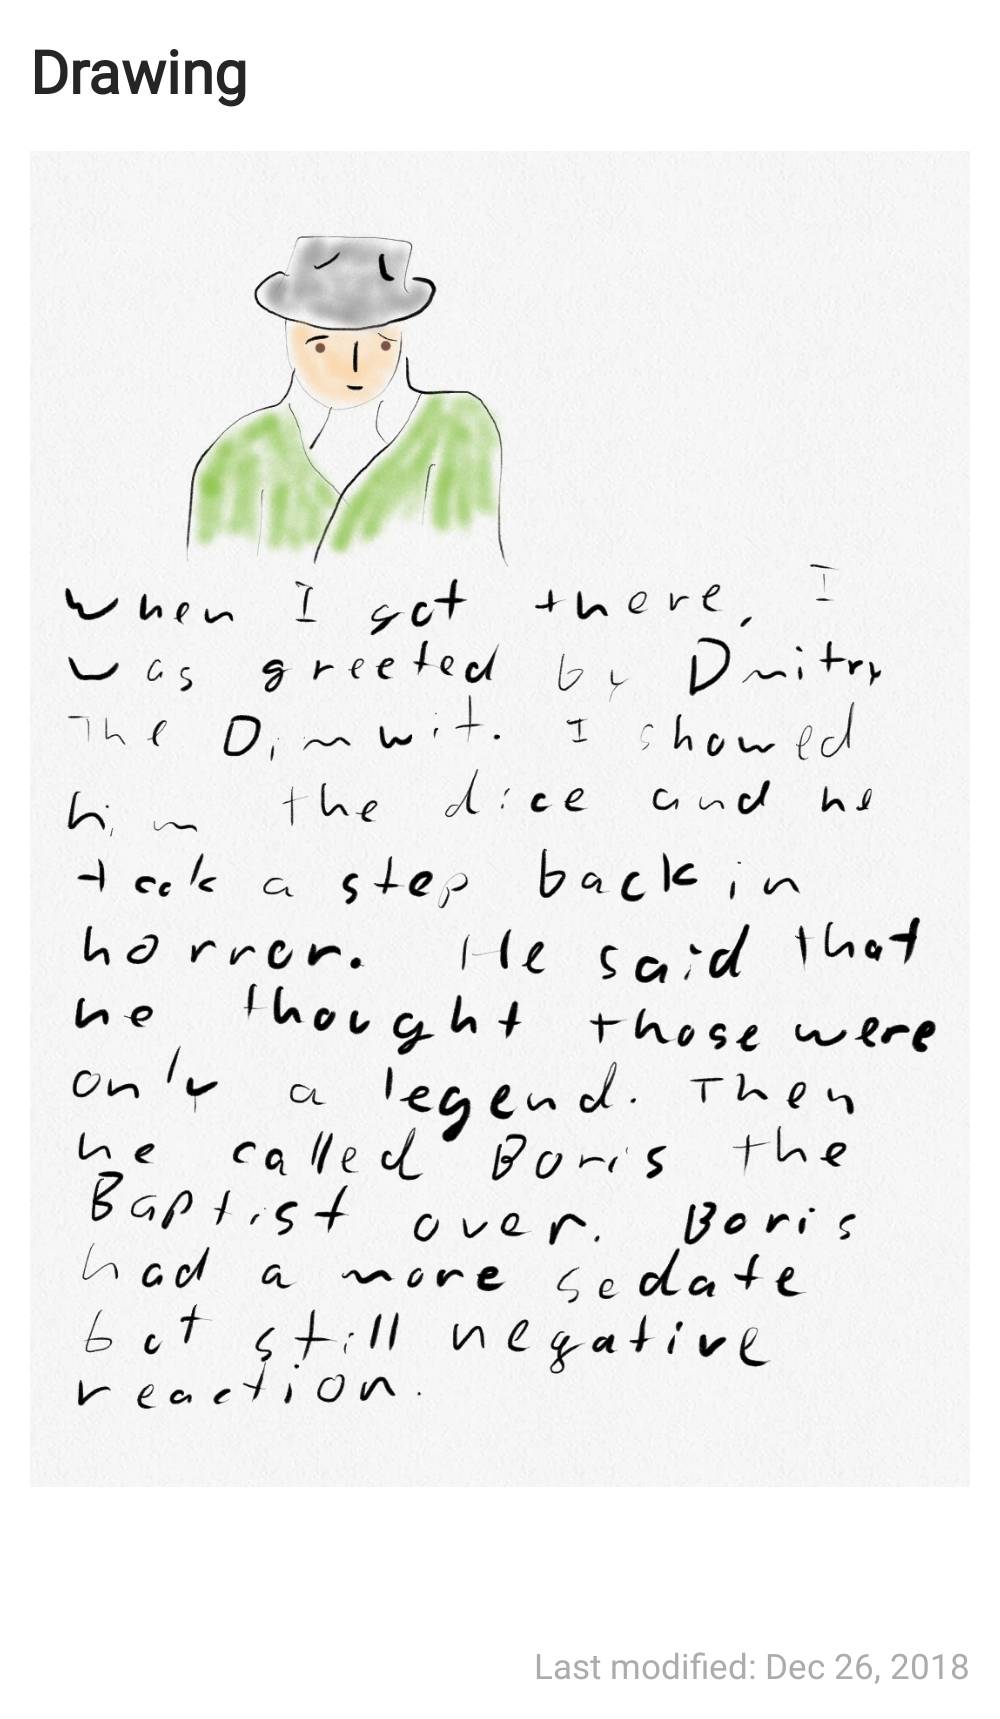 Drawing
When I got there, I
was greeted by Dmitry
The Dimwit. I showed
him the dice and he
took a step back in
horror. He said that
he thought those were
only a legend. Then
he called Boris the
Baptist over. Boris
had a more sedate
but still negative
reaction.
Last modified: Dec 26, 2018